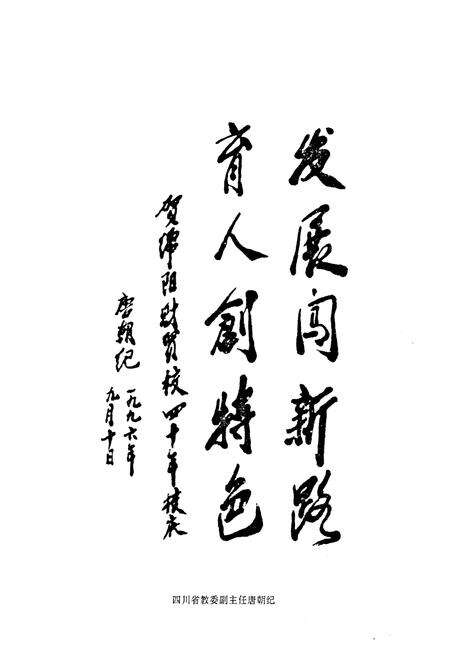 发展闯新路
育人創特色
贺绵阳财贸校四十年校庆
唐朝纪
一九九六年
九月十日
四川省教委副主任唐朝纪